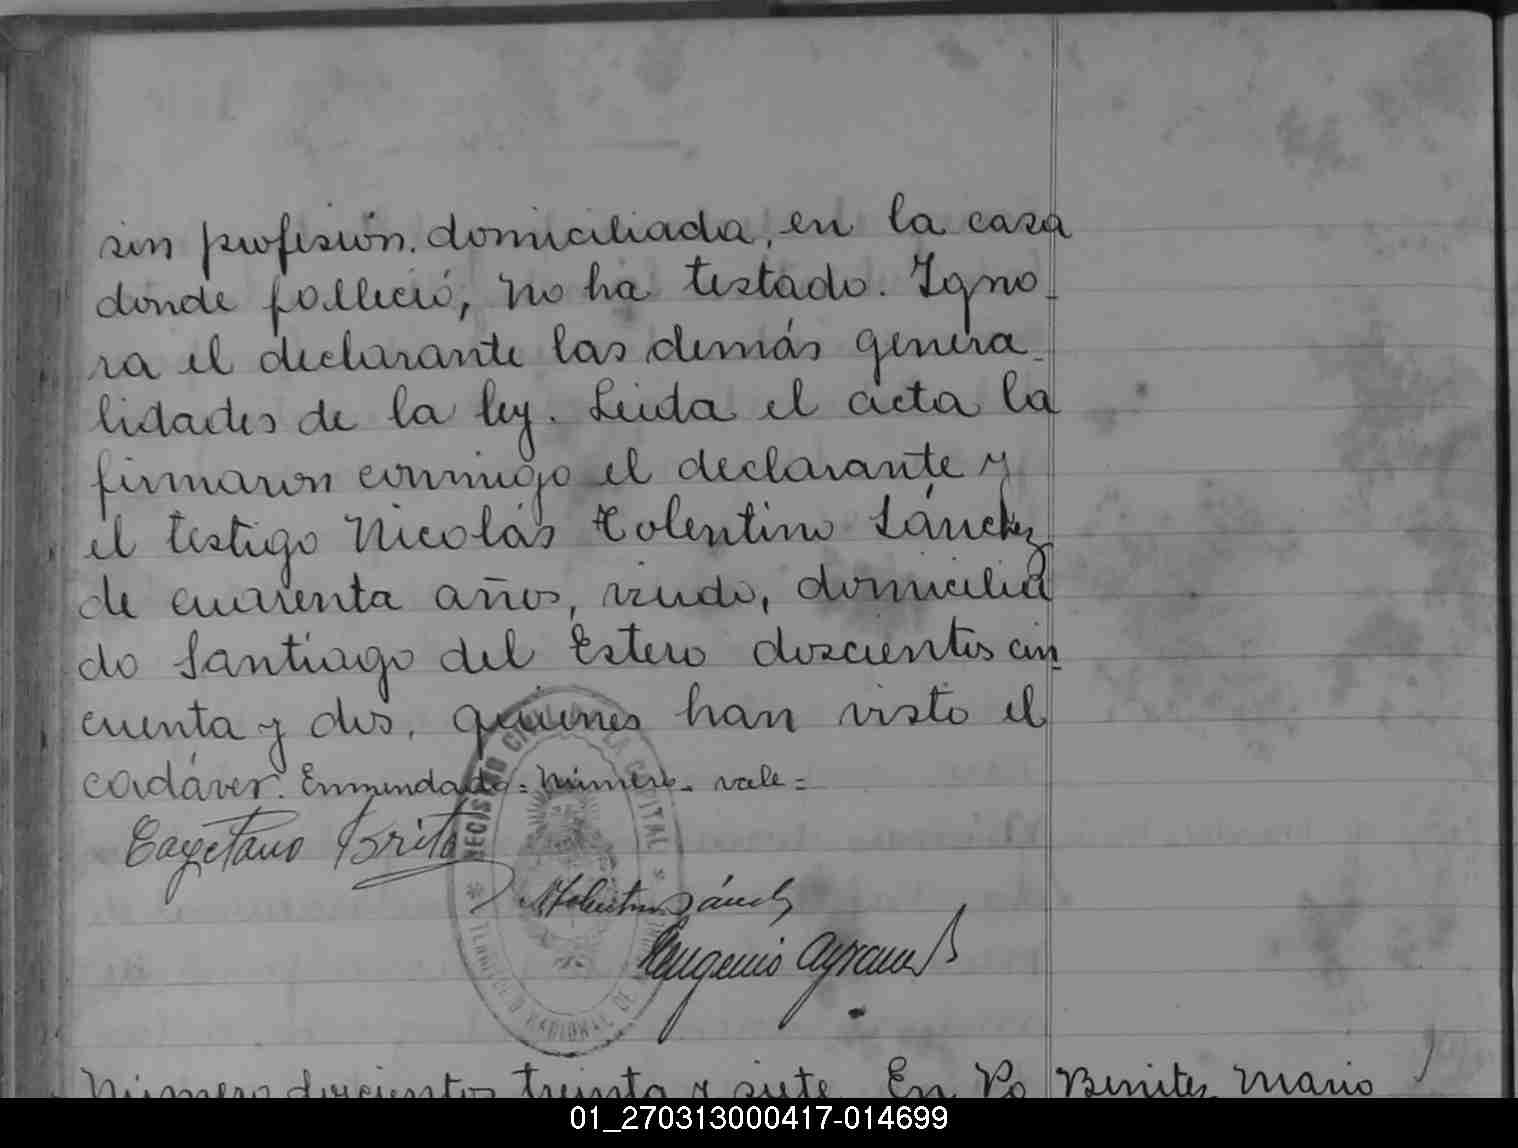 sin profesión. domiciliada, en la casa
donde falleció, no ha testado. Igno-
ra el declarante las demás genera-
lidades de la ley. Leida el acta la
firmaron conmigo el declarante y
el testigo Nicolás Tolentino Sánchez
de cuarenta años, viudo, domicilia
do Santiago del Estero doscientos cin-
cuenta y dos, quienes han visto el
cadáver. Enmendado = número - vale =
Cayetano Brito
REGISTRO CIVIL DE LA CAPITAL
* TERRITORIO NACIONAL DE *
NTolentino Sánchez
Eugenio
Número doscientos treinta y siete. En Po
Benitez Mario
01_270313000417-014699